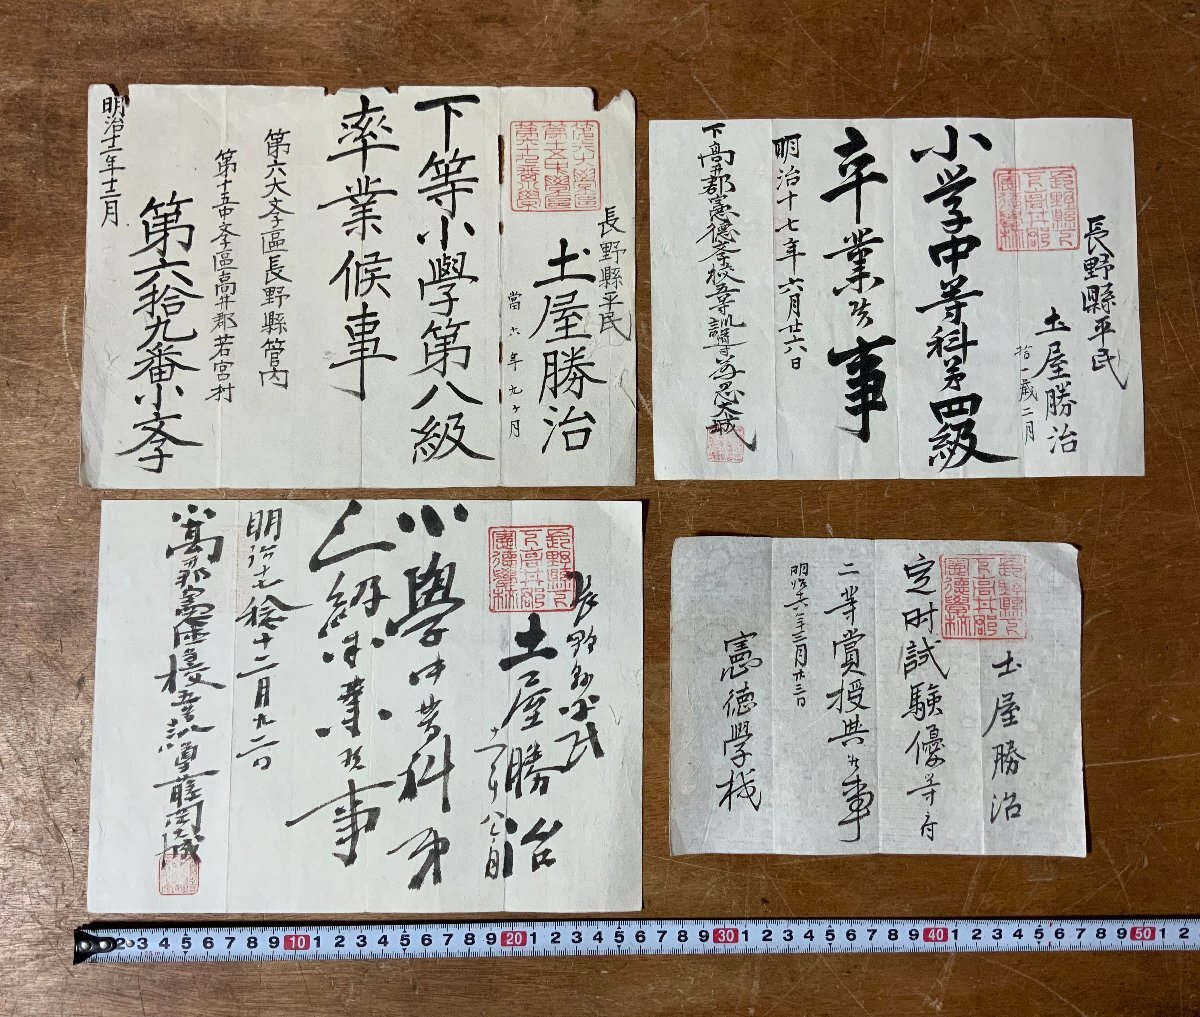 長野縣平民
土屋勝治
當六年九ヶ月
下等小學第八級
卒業候事
第六大学區長野縣管内
第十五中学區高井郡若宮村
第六拾九番小学
明治十二年十二月
長野縣平民
土屋勝治
拾一歳二月
小学中等科第四級
卒業候事
明治十七年六月廿六日
下高井郡憲德学校五等訓導
長野縣平民
土屋勝治
小學中等科第
三級卒業候事
明治十七稔十二月九二日
憲德校五等訓導
土屋勝治
定時試驗優等ニ付
二等賞授與候事
明治十六年三月廿三日
憲德學校
2 3 4 5 6 7 8 9 10 1 2 3 4 5 6 7 8 9 20 1 2 3 4 5 6 7 8 9 30 1 2 3 4 5 6 7 8 9 40 1 2 3 4 5 6 7 8 9 50 1 2